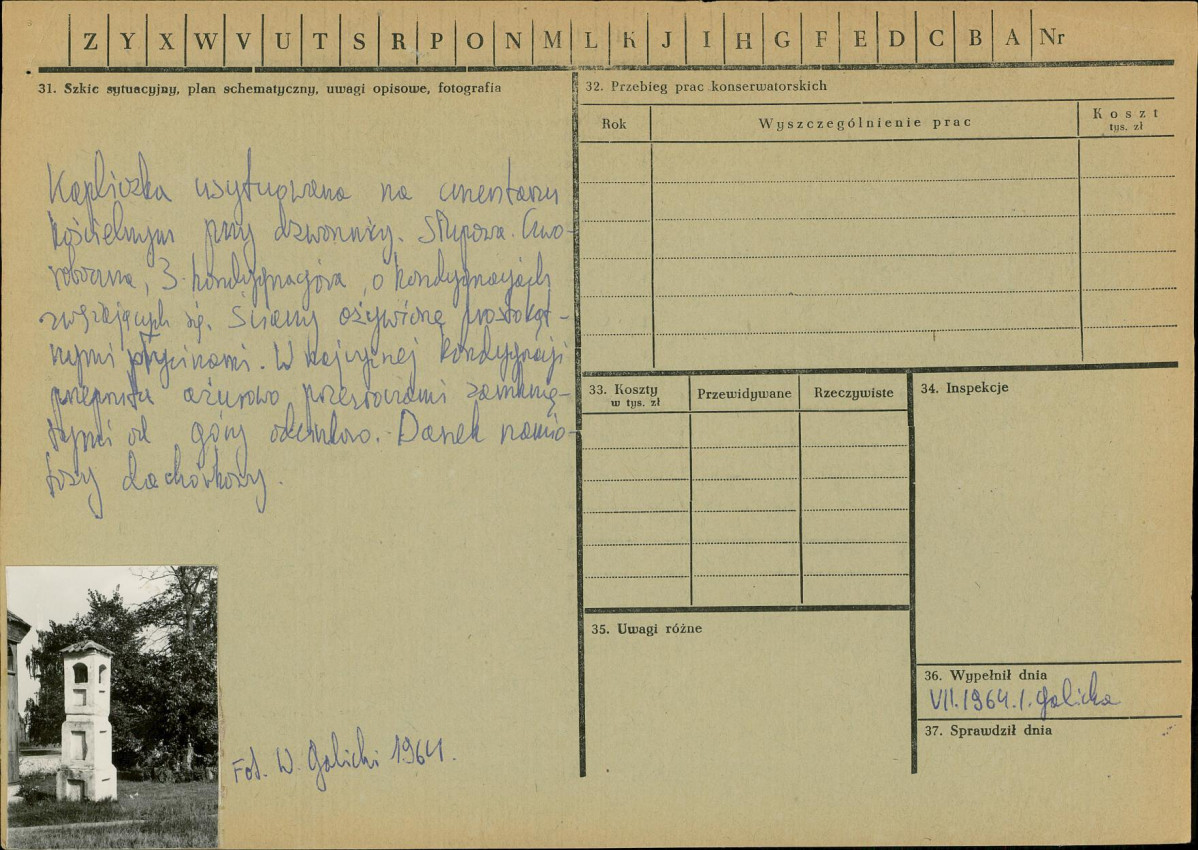 Z Y X W V U T S R P O N M L K J I H G F E D C B A Nr
31. Szkic sytuacyjny, plan schematyczny, uwagi opisowe, fotografia
Kapliczka usytuowana na cmentarzu
kościelnym przy dzwonnicy. Słupowa. Czwo-
roboczna, 3-kondygnacjowa, o kondygnacjach
zwężających się. Ściany ożywione prostokąt-
nymi płycinami. W najwyższej kondygnacji
ażurowo przezroczami zamknię-
tymi od góry odcinkowo. Daszek namio-
towy dachówkowy.
Fot. W. Galicki 1964.
32. Przebieg prac konserwatorskich
Rok
Wyszczególnienie prac
Koszt
tys. zł
33. Koszty
w tys. zł
Przewidywane
Rzeczywiste
34. Inspekcje
35. Uwagi różne
36. Wypełnił dnia
VII.1964. I. Galicka
37. Sprawdził dnia